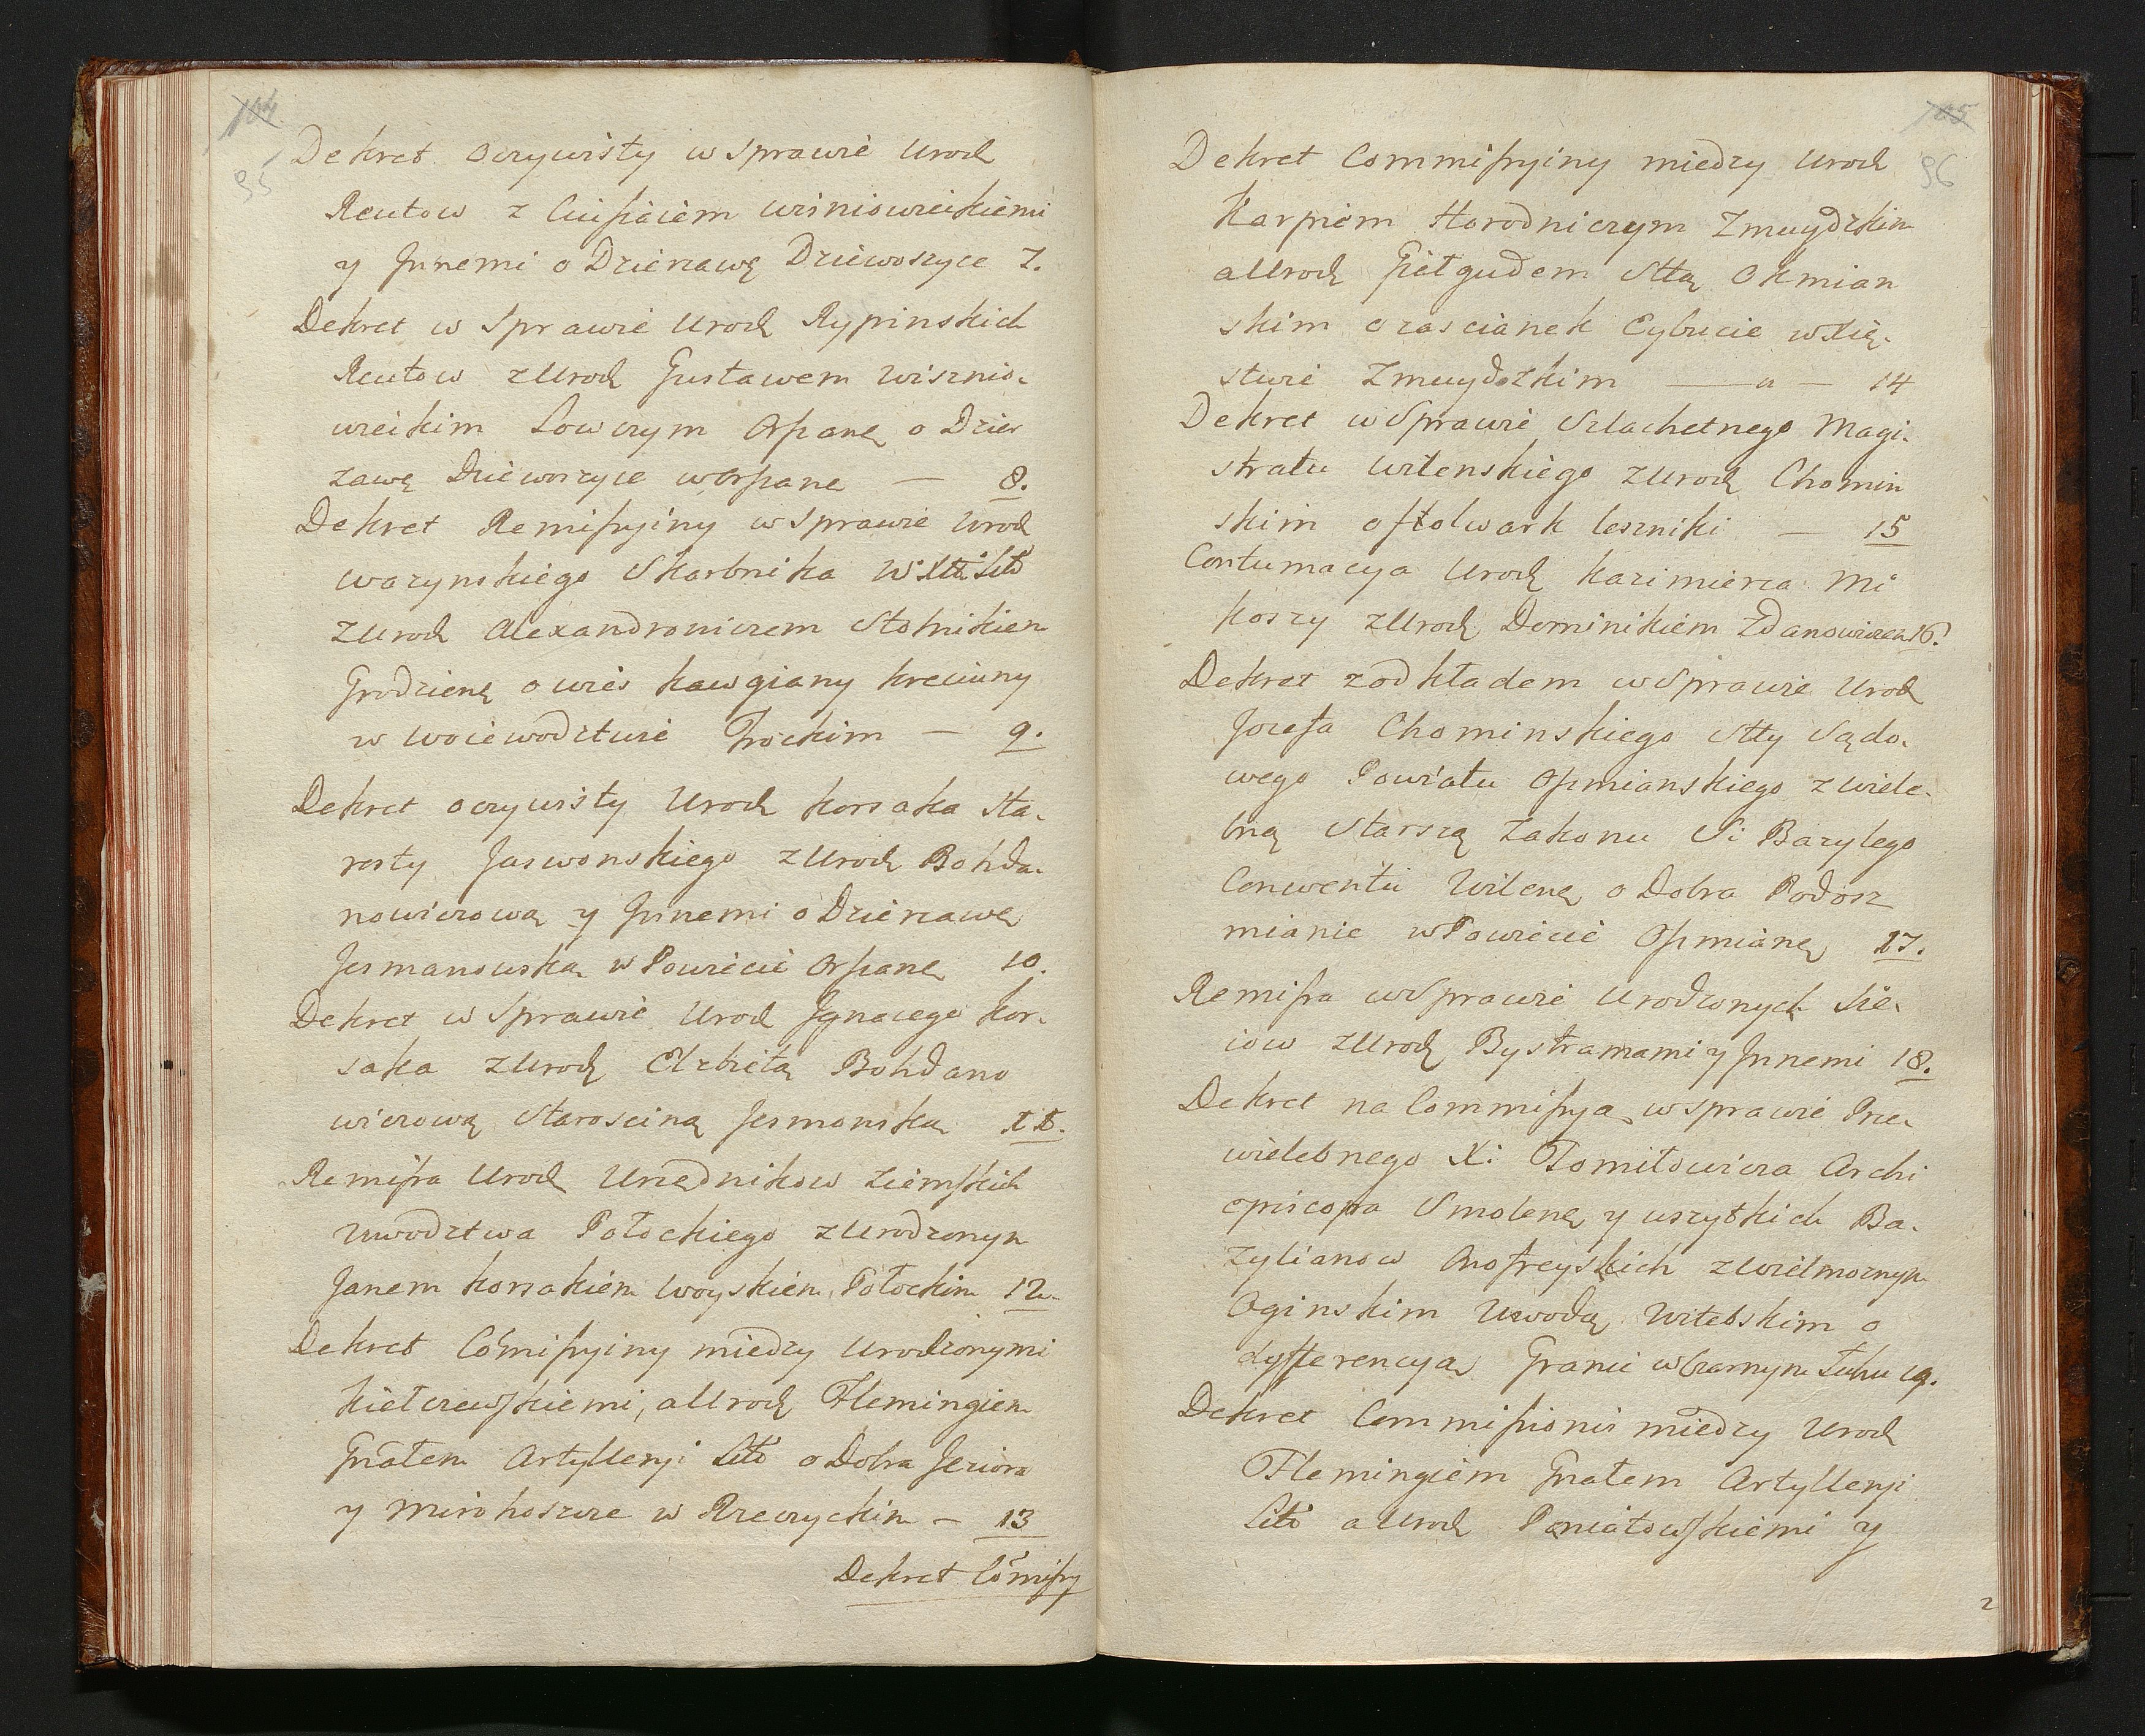 104
95
Dekret oczywisty w Sprawie Urodz
Reutow z Cuispiciem Wisniowieckiemi
y Innemi o Dzierzawę Dziewoszyce 7.
Dekret w Sprawie Urodz Rypinskich
Reutow z Urodz Gustawem Wisznio-
wieckim Lowczym Orszanę o Dzier
zawę Dziewoszyce w Orszanę — 8.
Dekret Remissyiny w Sprawie Urodz
Wazynskiego Skarbnika W: X: Litt
z Urodz Alexandrowiczem Stolnikiem
Grodzienę o wies Kawgiany Kreciuny
w Woiewodztwie Trockim — 9.
Dekret oczywisty Urodz Korsaka Sta-
rosty Jaswonskiego z Urodz Bohda-
nowiczową y Innemi o Dzierzawę
Jesmanowską w Powiecie Orszanę 10.
Dekret w Sprawie Urodz Ignacego Kor-
saka z Urodz Elzbietą Bohdano
wiczową Starosciną Jesmanską 11.
Remissa Urodz Urzędnikow Ziemskich
Wwodztwa Połockiego z Urodzonym
Janem Korsakiem Woyskiem Połockim 12.
Dekret Com̃issyiny miedzy Urodzonymi
Kiełczewskiemi, a Urodz Flemingiem
Gnãłem Artylleryi Litt o Dobra Jeziora
y Mirohoszcze w Rzeczyckim — 13
Dekret Com̃issy
105
96
Dekret Commissyiny miedzy Urodz
Karpiem Horodniczym Zmuydzkim
a Urodz Giełgudem Sttą Okmian
skim o zascianek Cybucie w Xię-
stwie Zmuydzkim — a — 14
Dekret w Sprawie Szlachetnego Magi-
stratu Wilenskiego z Urodz Chomin
skim o ffolwark Leszniki — 15
Contumacya Urodz Kazimierza Mi
koszy z Urodz Dominikiem Zdanowiczem 16.
Dekret z odkładem w Sprawie Urodz
Jozefa Chominskiego Stty Sądo-
wego Powiatu Oszmianskiego z Wiele-
bną Starszą Zakonu S: Bazylego
Conwentu Wilenę o Dobra Podosz
mianie w Powiecie Oszmianę 17.
Remissa w Sprawie Urodzonych Kie-
iow z Urodz Bystramami y Innemi 18.
Dekret na Commissyą w Sprawie Prze-
wielebnego X: Tomiłowicza Archi
episcopa Smolenę y wszytkich Ba-
zylianow Onofreyskich z Wielmoznym
Oginskim Wwodą Witebskim o
dyfferencyą Granic w Czarnym Łuhu 19.
Dekret Commissionis miedzy Urodz
Flemingiem Gnałem Artylleryi
Litt a Urodz Poniatowskiemi y
2